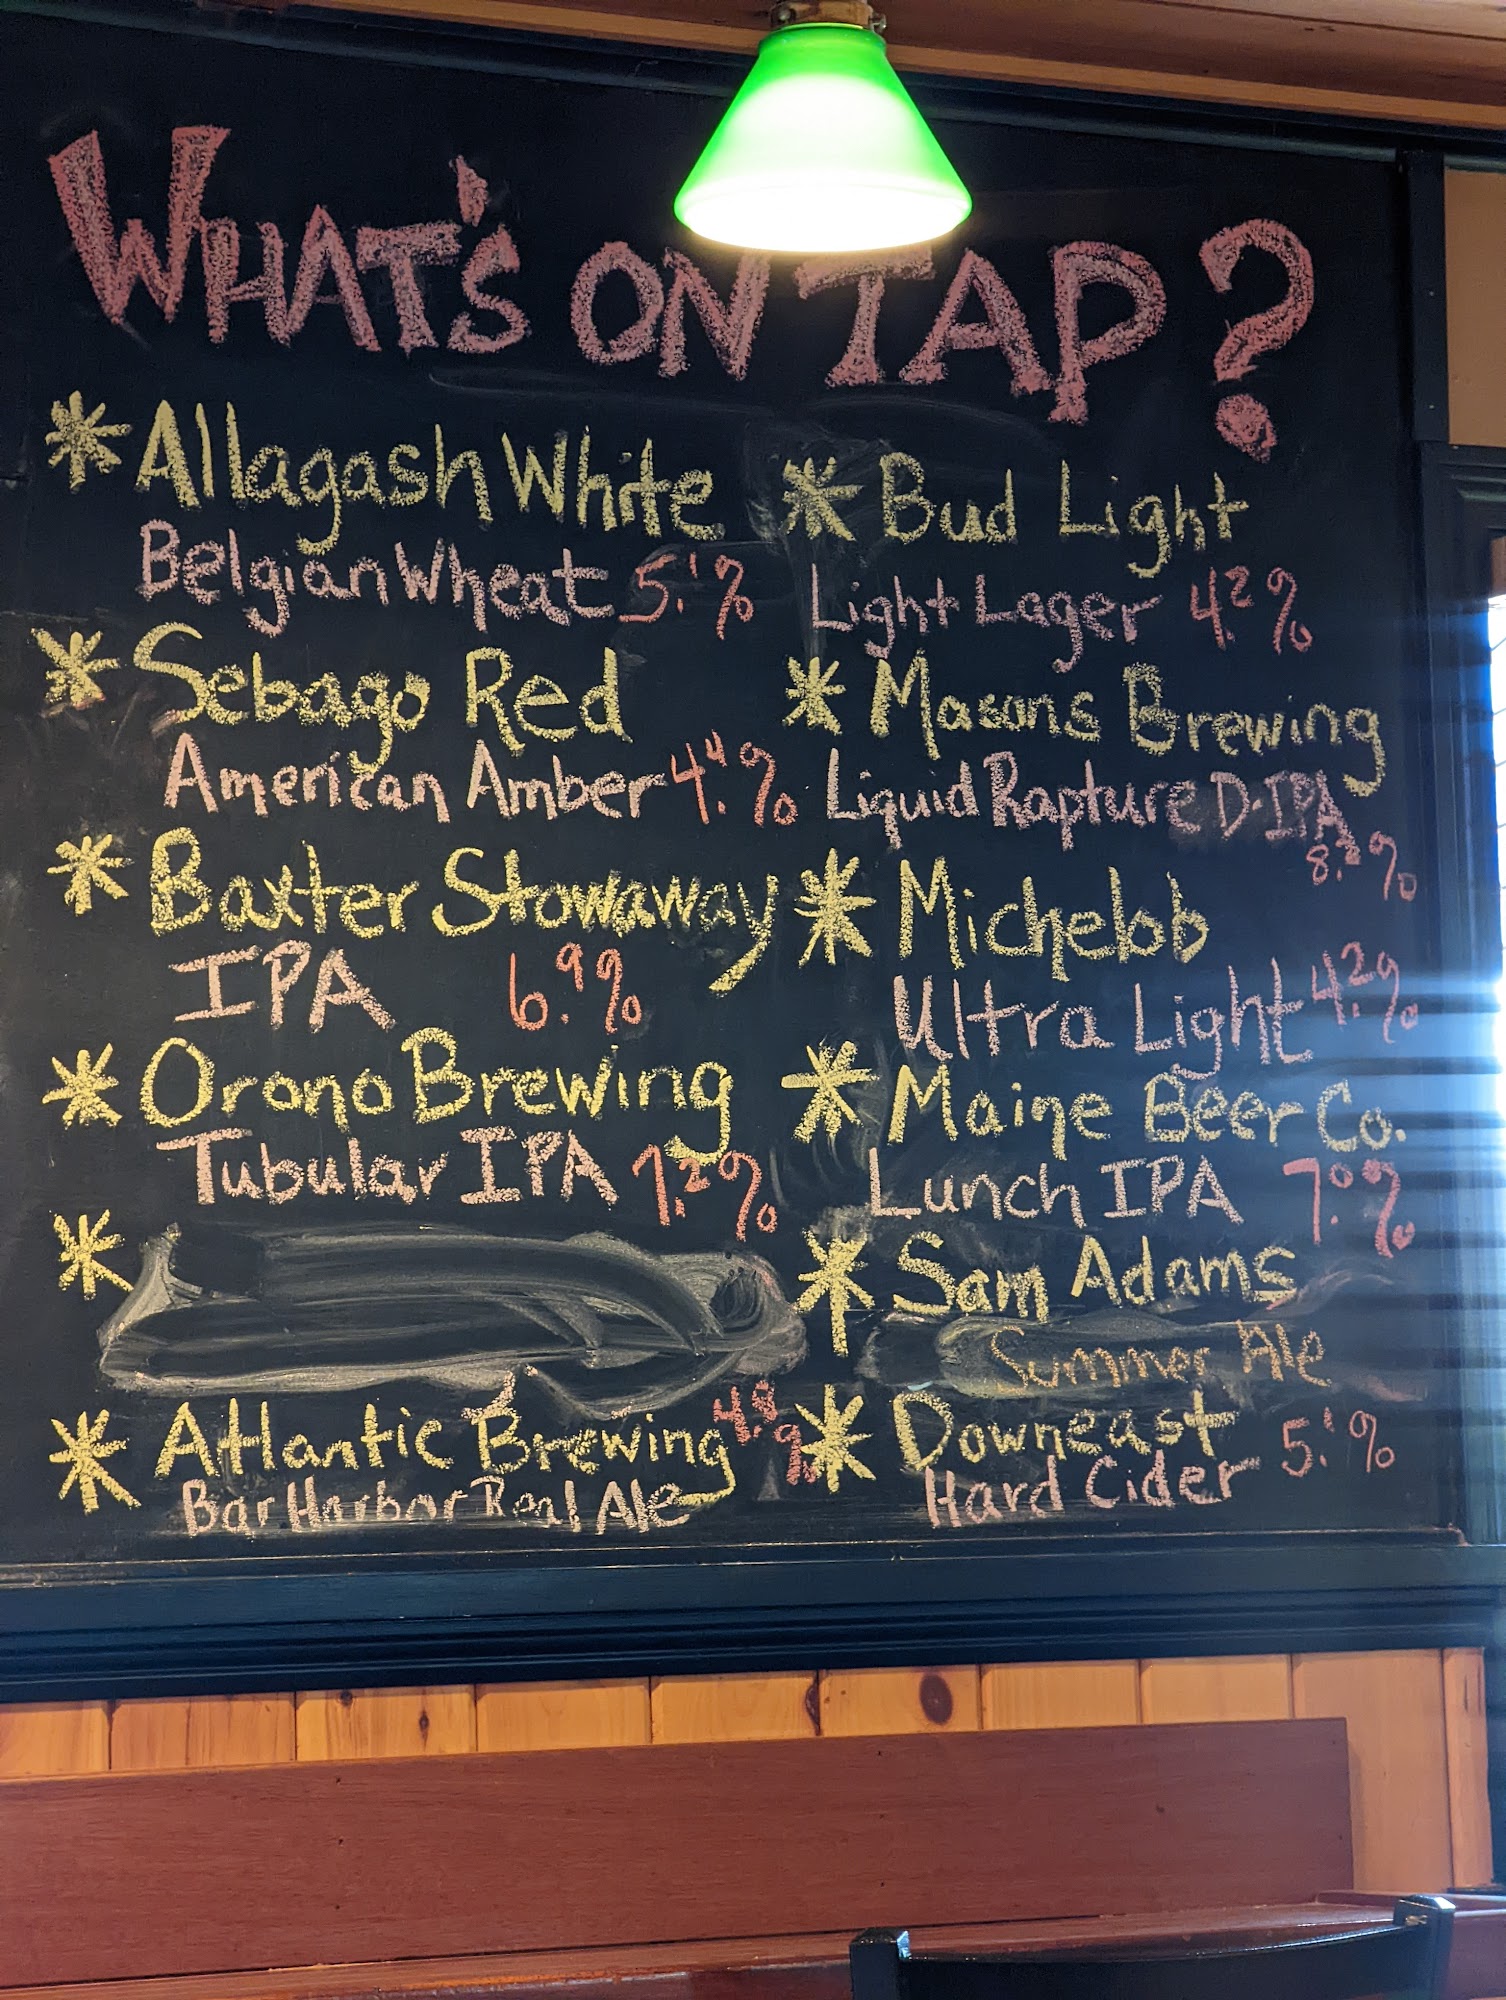 WHAT'S ON TAP?
Allagash White
Belgian Wheat 5.1%
Sebago Red
American Amber 4.4%
Baxter Stowaway
IPA 6.9%
Orono Brewing
Tubular IPA 7.2%
Atlantic Brewing 4.8%
Bar Harbor Real Ale
Bud Light
Light Lager 4.2%
Masons Brewing
Liquid Rapture D-IPA
8.2%
Michelob
Ultra Light 4.2%
Maine Beer Co.
Lunch IPA 7.0%
Sam Adams
Summer Ale
Downeast 5.1%
Hard Cider